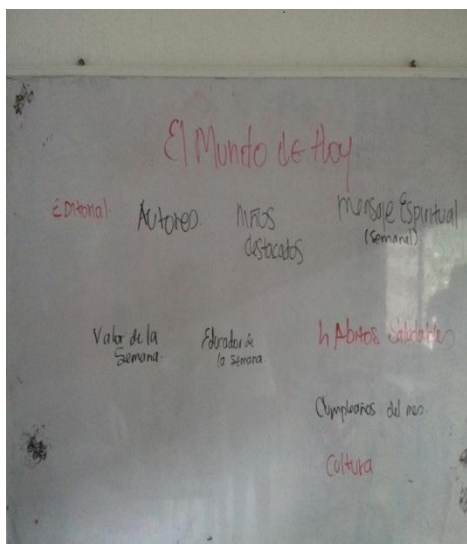 El Mundo de Hoy
Editorial. Autores. Niños destacados Mensaje Espiritual (semanal)
Valor de la Semana. Educador de la Semana. hAbitos Saludables
Cumpleaños del mes.
Cultura